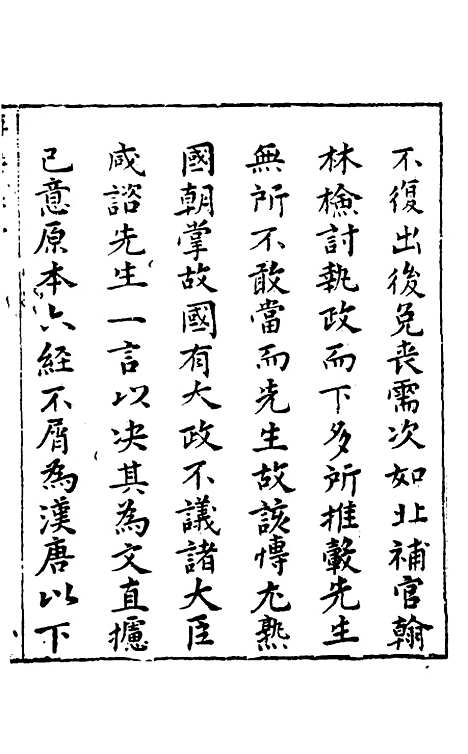 不復出後免喪需次如北補官翰
林檢討執政而下多所推轂先生
無所不敢當而先生故該博尤熟
國朝掌故國有大政不議諸大臣
咸諮先生一言以决其為文直攄
已意原本六經不屑為漢唐以下